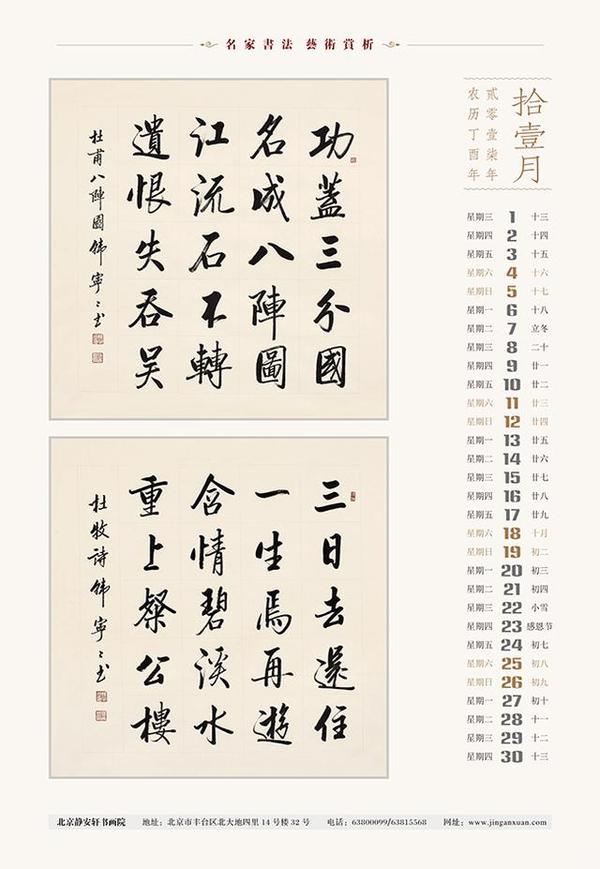 名家書法 藝術賞析
功蓋三分國
名成八陣圖
江流石不轉
遺恨失吞吴
杜甫八陣圖 韩寧〻书
三日去還住
一生焉再遊
含情碧溪水
重上粲公樓
杜牧诗 韩寧〻书
拾壹月
貳零壹柒年
农历丁酉年
星期三 1 十三
星期四 2 十四
星期五 3 十五
星期六 4 十六
星期日 5 十七
星期一 6 十八
星期二 7 立冬
星期三 8 二十
星期四 9 廿一
星期五 10 廿二
星期六 11 廿三
星期日 12 廿四
星期一 13 廿五
星期二 14 廿六
星期三 15 廿七
星期四 16 廿八
星期五 17 廿九
星期六 18 十月
星期日 19 初二
星期一 20 初三
星期二 21 初四
星期三 22 小雪
星期四 23 感恩节
星期五 24 初七
星期六 25 初八
星期日 26 初九
星期一 27 初十
星期二 28 十一
星期三 29 十二
星期四 30 十三
北京静安轩书画院 地址：北京市丰台区北大地四里14号楼32号 电话：63800099/63815568 网址：www.jinganxuan.com